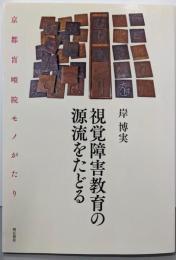 京都盲啞院モノがたり
岸 博実
視覚障害教育の
源流をたどる
明石書店